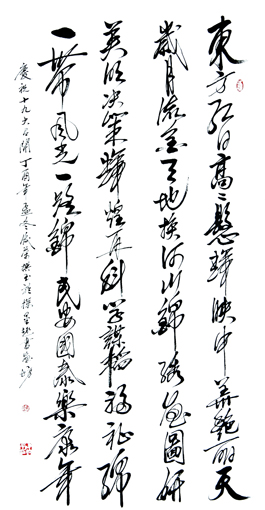 東方紅日高〻懸輝映中華艷麗天
歲月流金天地換河山錦繡畫圖妍
英明決策輝煌再科學謀福祉綿
一帶風光一路錦民安國泰樂康年
慶祝十九大召開丁酉年孟冬